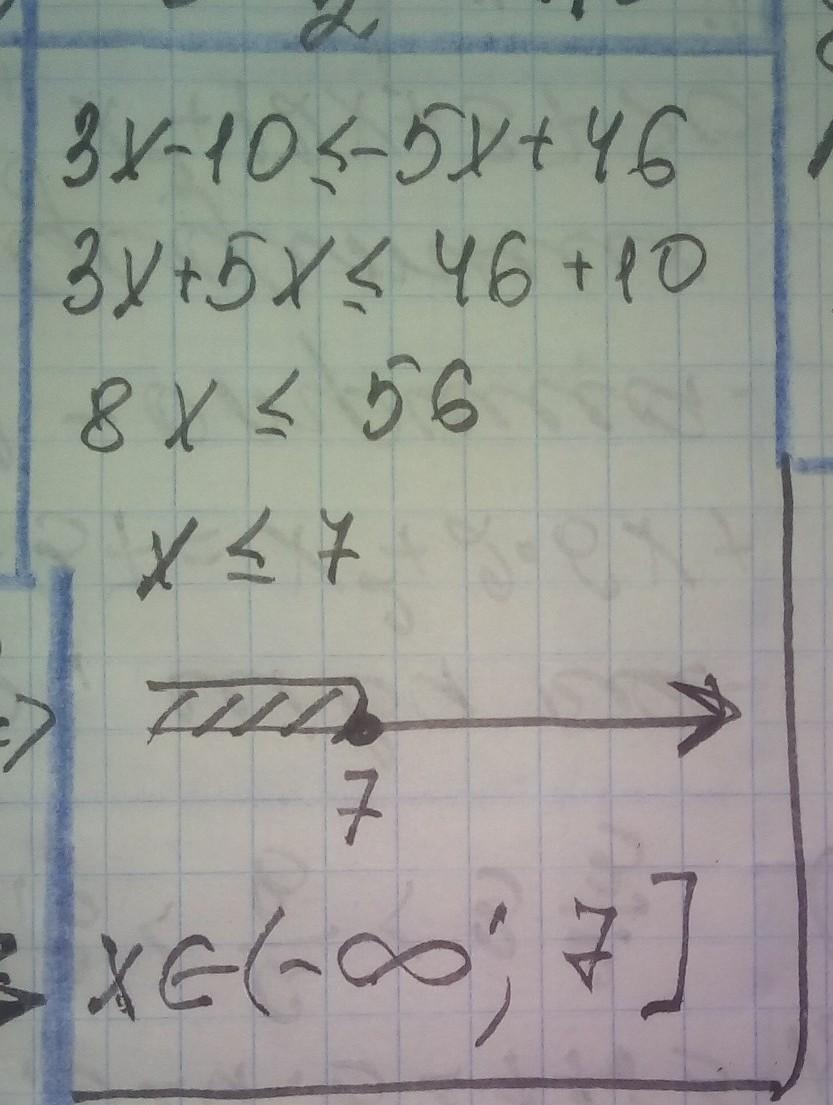 2
3x-10≤-5x+46
3x+5x≤46+10
8x≤56
x≤7
7
x∈(-∞; 7]